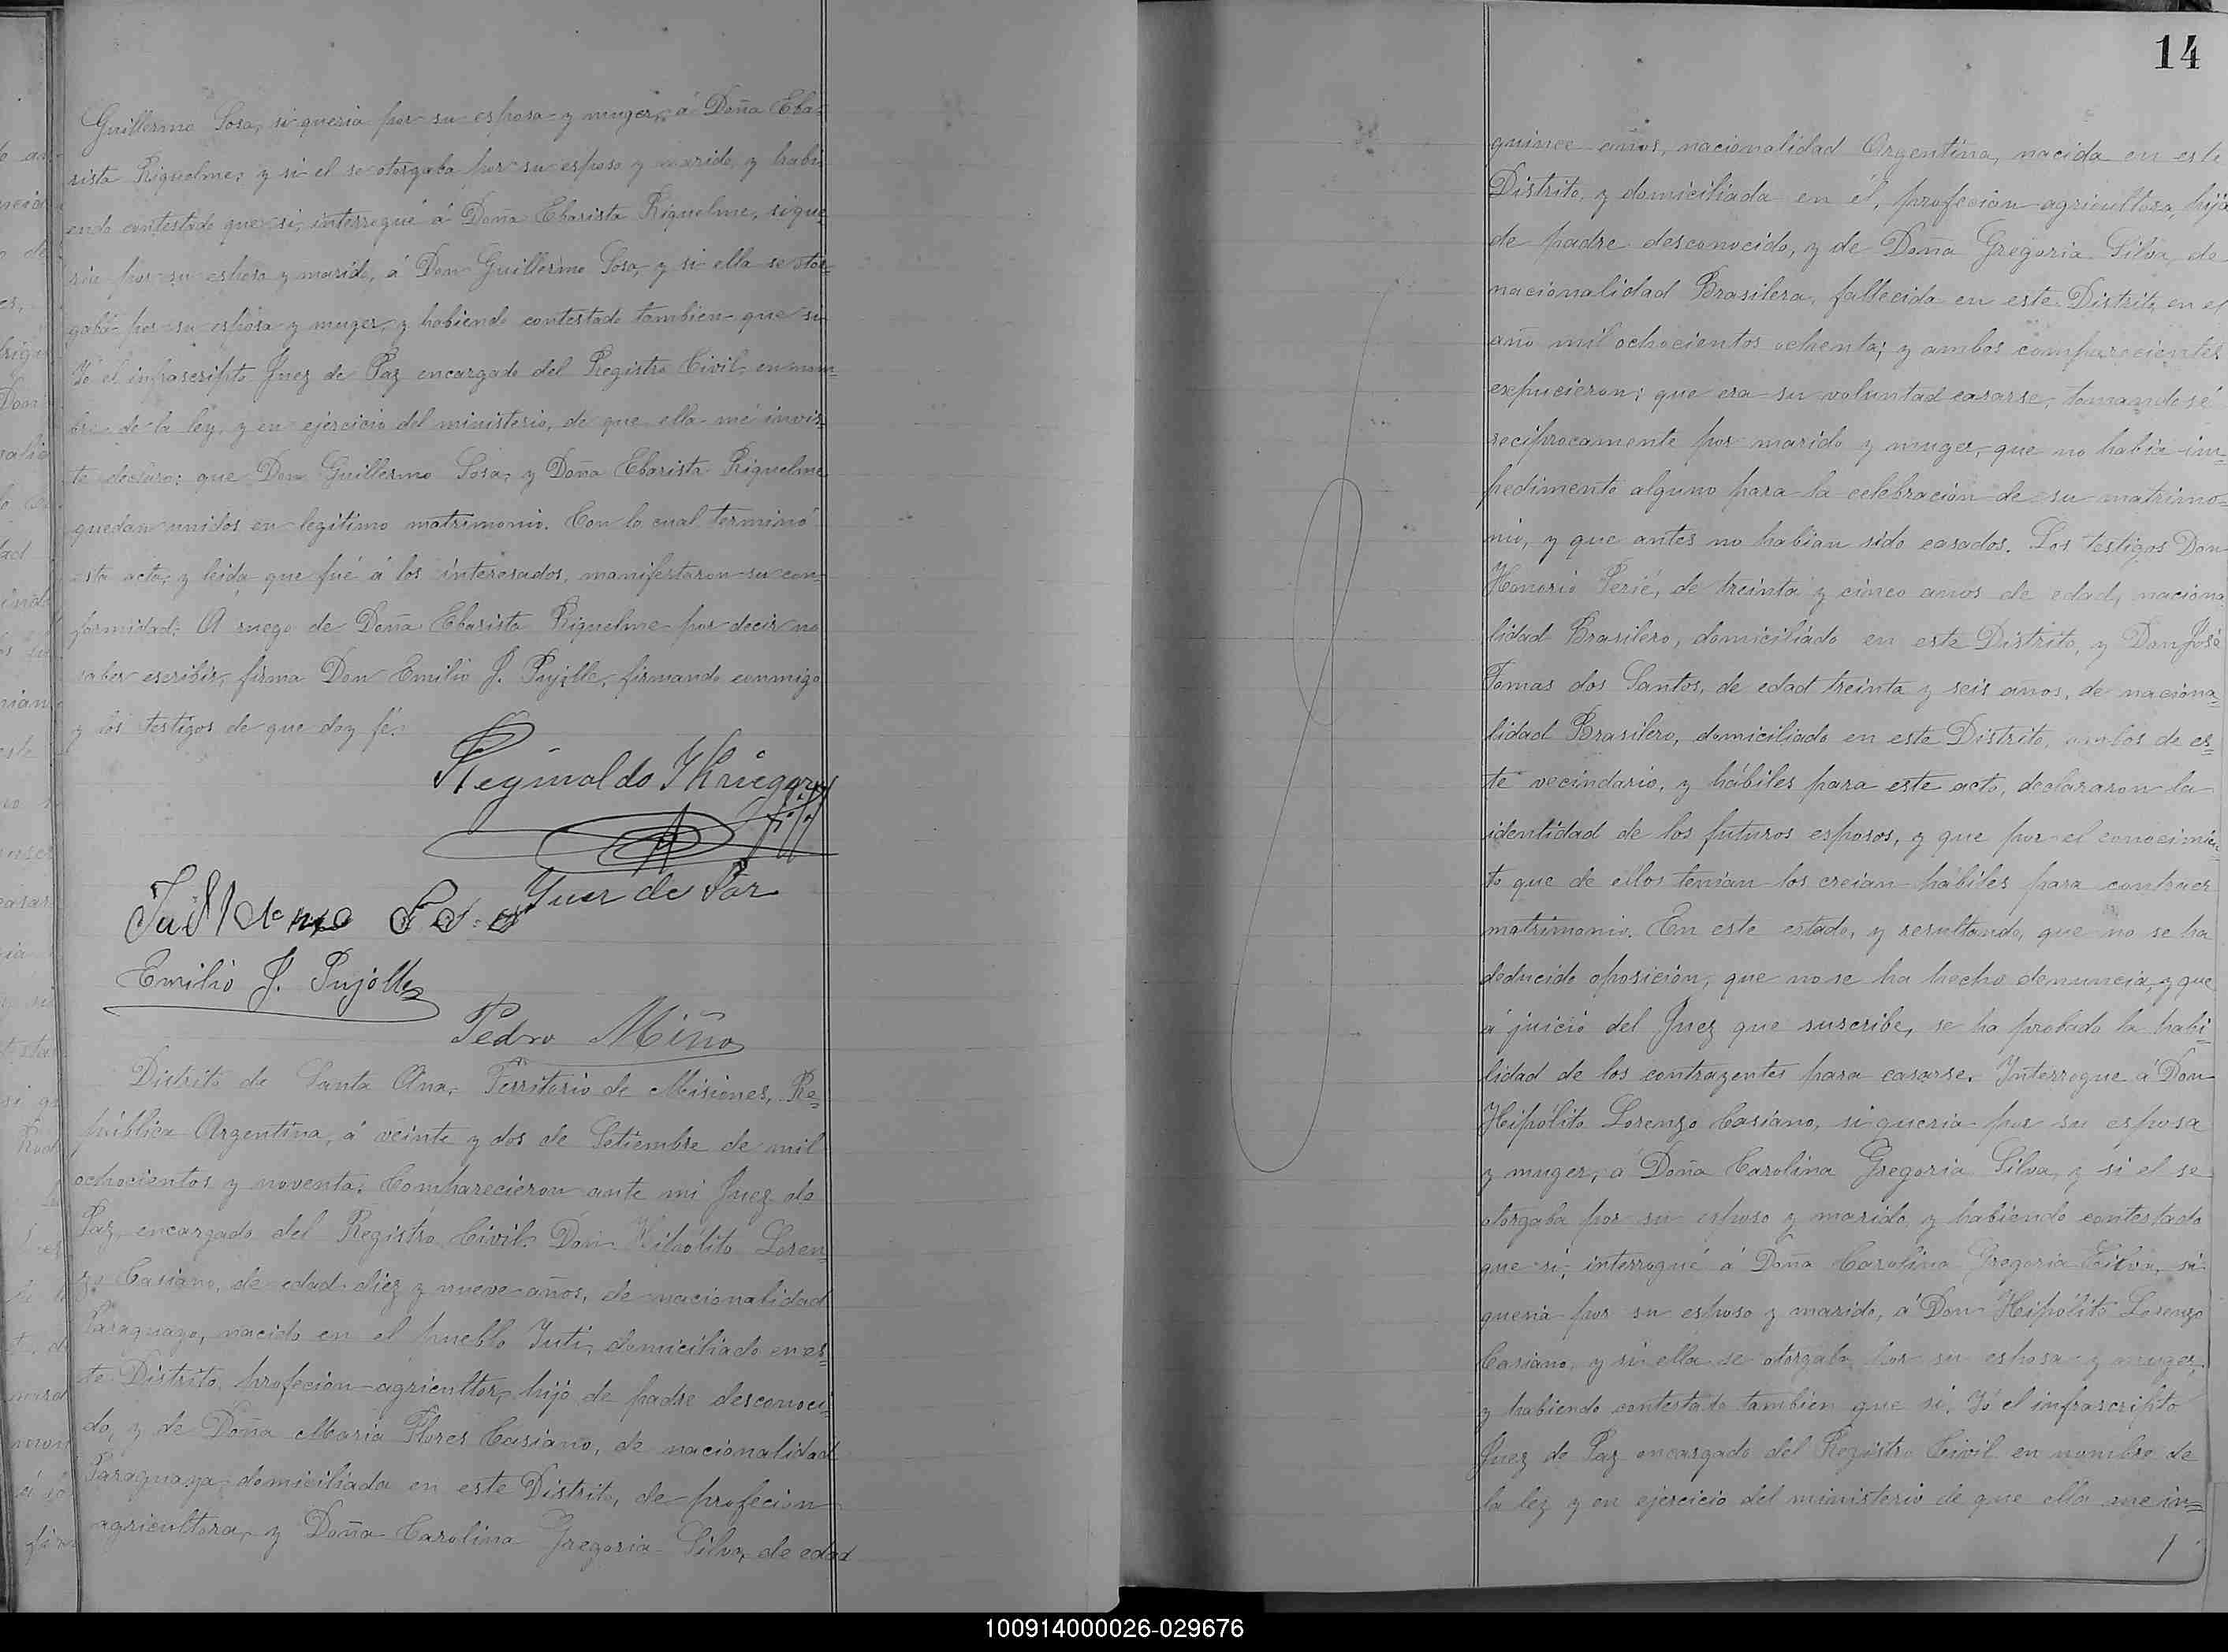 Guillermo Sosa, si queria por su esposa y muger, á Doña Eba=
rista Riquelme, y si el se otorgaba por su esposo y marido, y habi
endo contestado que si, interrogué á Doña Ebarista Riquelme, si que
ria por su esposo y marido, á Don Guillermo Sosa, y si ella se otor=
gaba por su esposa y muger, y habiendo contestado tambien que si
Yo el infrascripto Juez de Paz encargado del Registro Civil, en nom=
bre de la ley, y en ejercicio del ministerio, de que ella me invis=
te declaro: que Don Guillermo Sosa, y Doña Ebarista Riquelme
quedan unidos en legitimo matrimonio. Con lo cual terminó
esta acta, y leida que fué á los interesados, manifestaron su con=
formidad. A ruego de Doña Ebarista Riquelme por decir no
saber escribir, firma Don Emilio J. Pujolle, firmando conmigo
y los testigos de que doy fé.
Reginaldo Krieger
Juez de Paz
Guillermo Sosa
Emilio J. Pujolle
Pedro Miño
Distrito de Santa Ana, Territorio de Misiones, Re=
pública Argentina, á veinte y dos de Setiembre de mil
ochocientos y noventa. Comparecieron ante mi Juez de
Paz encargado del Registro Civil. Don Hipólito Loren=
zo Casiano, de edad diez y nueve años, de nacionalidad
Paraguayo, nacido en el pueblo Yuti, domiciliado en es=
te Distrito, profecion agricultor, hijo de padre desconoci=
do, y de Doña Maria Flores Casiano, de nacionalidad
Paraguaya domiciliada en este Distrito, de profecion
agricultora, y Doña Carolina Gregoria Silva, de edad
14
quince años, nacionalidad Argentina, nacida en este
Distrito, y domiciliada en él, profecion agricultora, hija
de padre desconocido, y de Doña Gregoria Silva, de
nacionalidad Brasilera, fallecida en este Distrito en el
año mil ochocientos ochenta; y ambos comparecientes
expucieron: que era su voluntad casarse, tomandosé
reciprocamente por marido y muger, que no habia im=
pedimento alguno para la celebración de su matrimo=
nio, y que antes no habian sido casados. Los testigos Don
Honorio Perié, de treinta y cinco años de edad, naciona
lidad Brasilero, domiciliado en este Distrito, y Don José
Tomas dos Santos, de edad treinta y seis años, de naciona=
lidad Brasilero, domiciliado en este Distrito, ambos de es=
te vecindario, y hábiles para este acto, declararon la
identidad de los futuros esposos, y que por el conocimien=
to que de ellos tenian los creian hábiles para contraer
matrimonio. En este estado, y resultando, que no se ha
deducido oposición, que no se ha hecho denuncia, y que
á juicio del Juez que suscribe, se ha probado la habi=
lidad de los contrayentes para casarse. Interrogue á Don
Hipólito Lorenzo Casiano, si queria por su esposa
y muger, á Doña Carolina Gregoria Silva, y si el se
otorgaba por su esposo y marido, y habiendo contestado
que si, interrogué á Doña Carolina Gregoria Silva, si
queria por su esposo y marido, á Don Hipólito Lorenzo
Casiano, y si ella se otorgaba por su esposa y muger,
y habiendo contestado tambien que si. Yo el infrascripto
Juez de Paz encargado del Registro Civil en nombre de
la ley y en ejercicio del ministerio de que ella me in=
100914000026-029676